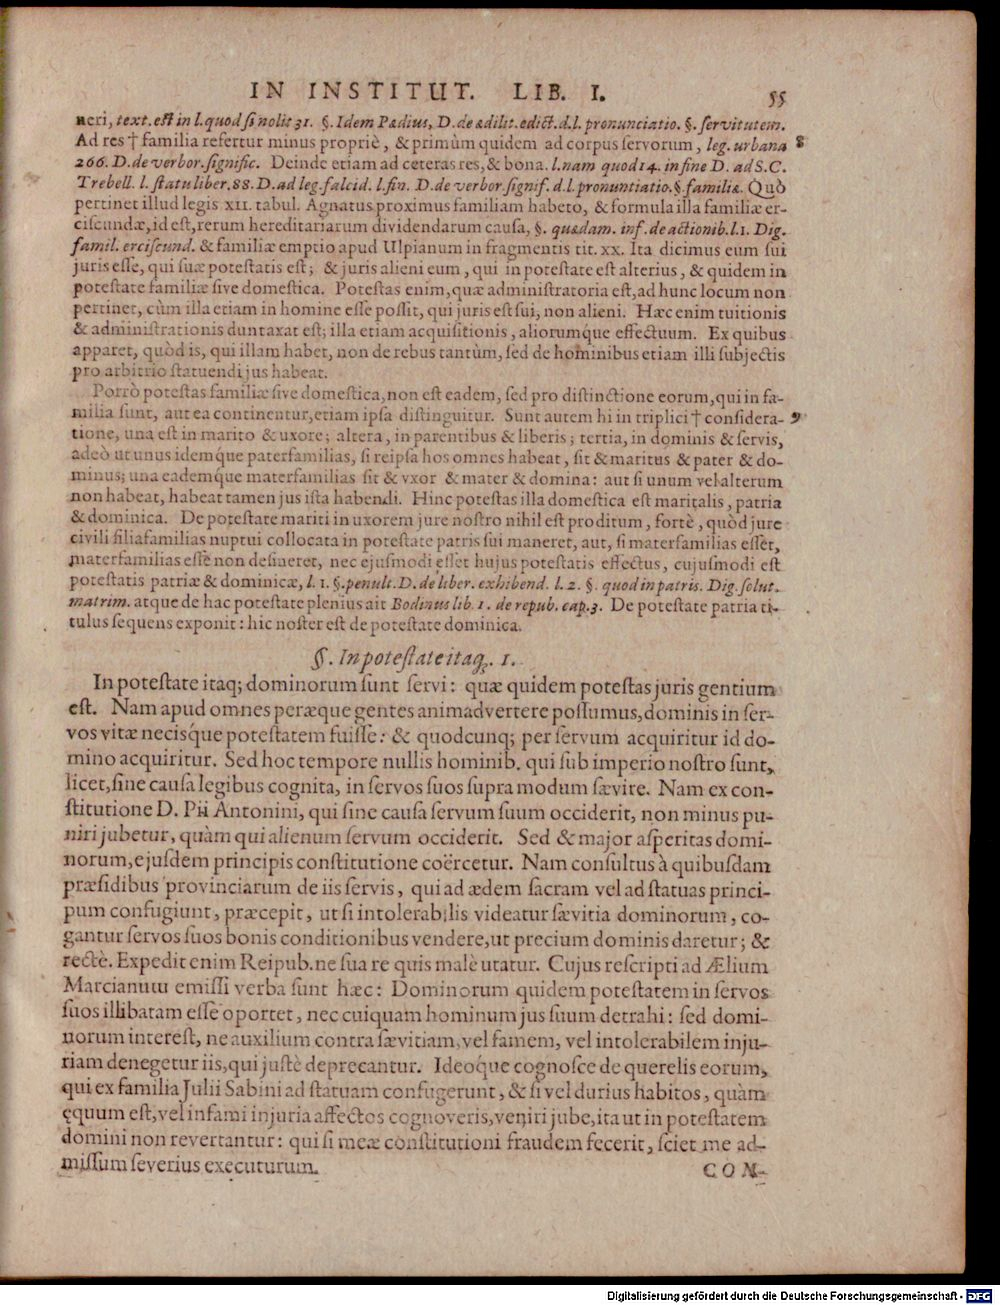 IN INSTITUT. LIB. I. 55
neri, text. est in l. quod si nolit 31. §. Idem Pædius, D. de ædilit. edict. d. l. pronunciatio. §. servitutem.
Ad res † familia refertur minus propriè, & primùm quidem ad corpus servorum, leg. urbana 8
266. D. de verbor. signific. Deinde etiam ad ceteras res, & bona. l. nam quod 14. in fine D. ad S. C.
Trebell. l. statu liber. 88. D. ad leg. falcid. l. fin. D. de verbor. signif. d. l. pronuntiatio. §. familiæ. Quò
pertinet illud legis XII. tabul. Agnatus proximus familiam habeto, & formula illa familiæ er-
ciscundæ, id est, rerum hereditariarum dividendarum causa, §. quædam. inf. de actionib. l. 1. Dig.
famil. erciscund. & familiæ emptio apud Ulpianum in fragmentis tit. xx. Ita dicimus eum sui
juris esse, qui suæ potestatis est; & juris alieni eum, qui in potestate est alterius, & quidem in
potestate familiæ sive domestica. Potestas enim, quæ administratoria est, ad hunc locum non
pertinet, cùm illa etiam in homine esse possit, qui juris est sui, non alieni. Hæc enim tuitionis
& administrationis duntaxat est; illa etiam acquisitionis, aliorumque effectuum. Ex quibus
apparet, quòd is, qui illam habet, non de rebus tantùm, sed de hominibus etiam illi subjectis
pro arbitrio statuendi jus habeat.
Porrò potestas familiæ sive domestica, non est eadem, sed pro distinctione eorum, qui in fa-
milia sunt, aut ea continentur, etiam ipsa distinguitur. Sunt autem hi in triplici † considera- 9
tione, una est in marito & uxore; altera, in parentibus & liberis; tertia, in dominis & servis,
adeò ut unus idemque paterfamilias, si reipsa hos omnes habeat, sit & maritus & pater & do-
minus; una eademque materfamilias sit & vxor & mater & domina: aut si unum vel alterum
non habeat, habeat tamen jus ista habendi. Hinc potestas illa domestica est maritalis, patria
& dominica. De potestate mariti in uxorem jure nostro nihil est proditum, fortè, quòd jure
civili filiafamilias nuptui collocata in potestate patris sui maneret, aut, si materfamilias esset,
materfamilias esse non desineret, nec ejusmodi esset hujus potestatis effectus, cujusmodi est
potestatis patriæ & dominicæ, l. 1. §. penult. D. de liber. exhibend. l. 2. §. quod in patris. Dig. solut.
matrim. atque de hac potestate plenius ait Bodinus lib. 1. de repub. cap. 3. De potestate patria ti-
tulus sequens exponit: hic noster est de potestate dominica.
§. In potestate itaq;. 1.
In potestate itaq; dominorum sunt servi: quæ quidem potestas juris gentium
est. Nam apud omnes peræque gentes animadvertere possumus, dominis in ser-
vos vitæ necisque potestatem fuisse: & quodcunq; per servum acquiritur id do-
mino acquiritur. Sed hoc tempore nullis hominib. qui sub imperio nostro sunt,
licet, sine causa legibus cognita, in servos suos supra modum sævire. Nam ex con-
stitutione D. Pii Antonini, qui sine causa servum suum occiderit, non minus pu-
niri jubetur, quàm qui alienum servum occiderit. Sed & major asperitas domi-
norum, ejusdem principis constitutione coërcetur. Nam consultus à quibusdam
præsidibus provinciarum de iis servis, qui ad ædem sacram vel ad statuas princi-
pum confugiunt, præcepit, ut si intolerabilis videatur sævitia dominorum, co-
gantur servos suos bonis conditionibus vendere, ut precium dominis daretur; &
rectè. Expedit enim Reipub. ne sua re quis malè utatur. Cujus rescripti ad Ælium
Marcianum emissi verba sunt hæc: Dominorum quidem potestatem in servos
suos illibatam esse oportet, nec cuiquam hominum jus suum detrahi: sed domi-
norum interest, ne auxilium contra sævitiam, vel famem, vel intolerabilem inju-
riam denegetur iis, qui justè deprecantur. Ideoque cognosce de querelis eorum,
qui ex familia Julii Sabini ad statuam confugerunt, & si vel durius habitos, quàm
ęquum est, vel infami injuria affectos cognoveris, veniri jube, ita ut in potestatem
domini non revertantur: qui si meæ constitutioni fraudem fecerit, sciet me ad-
missum severius executurum.
COM-
Digitalisierung gefördert durch die Deutsche Forschungsgemeinschaft - DFG